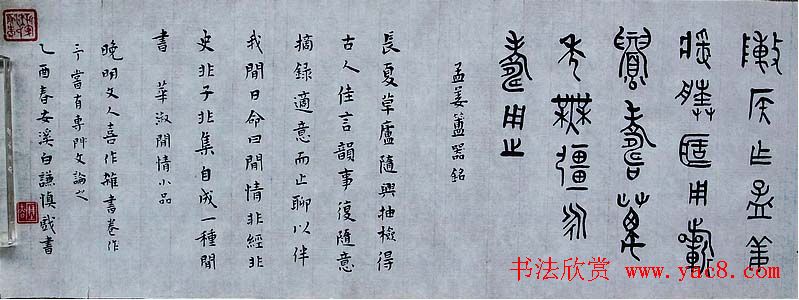 敶侯乍孟姜
媵匡用
眉壽萬
年無疆永
壽用之
孟姜簠器銘
長夏草廬隨興抽檢得
古人佳言韻事復隨意
摘錄適意而止聊以伴
我閒日命曰閒情非經非
史非子非集自成一種閒
書 華淑閒情小品
晚明文人喜作雜書卷作
予嘗有專門文論之
乙酉春安溪白謙慎戲書
书法欣赏 www.yac8.com